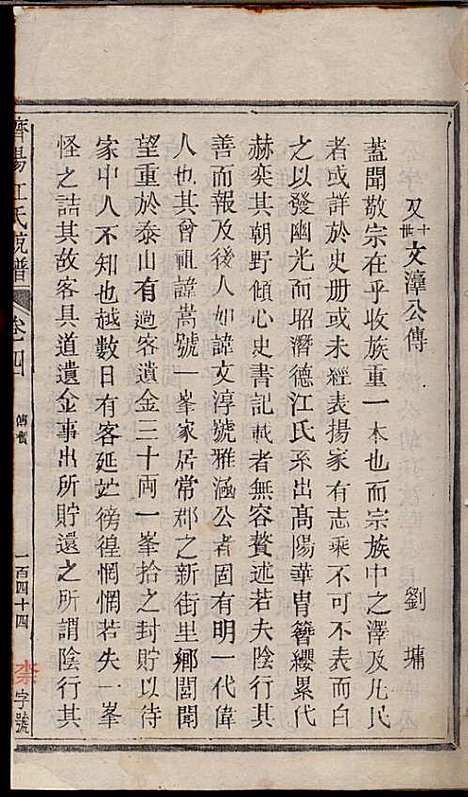 又十世文淳公傳
劉墉
蓋聞敬宗在乎收族重一本也而宗族中之澤及凢民
者或詳於史册或未經表揚家有志乘不可默默而自
之以發幽光而昭潛德江氏系出髙陽華胄簪纓累代
赫奕其朝野傾心史書記載者無容贅述若夫陰行其
善而報及後人如諱文淳號雅涵公者固有明一代偉
人也其曾祖諱嵩號一峯家居常郡之新街里鄉閭聞
望重於泰山有過客遺金三十両一峯拾之封貯以待
家中人不知也越數日有客延𫝑徬徨惘惘若失一峯
怪之詰其故客具道遺金事出所貯還之所謂陰行其
濟陽江氏宗譜
卷四
傳贊
一百四十四
柰字號